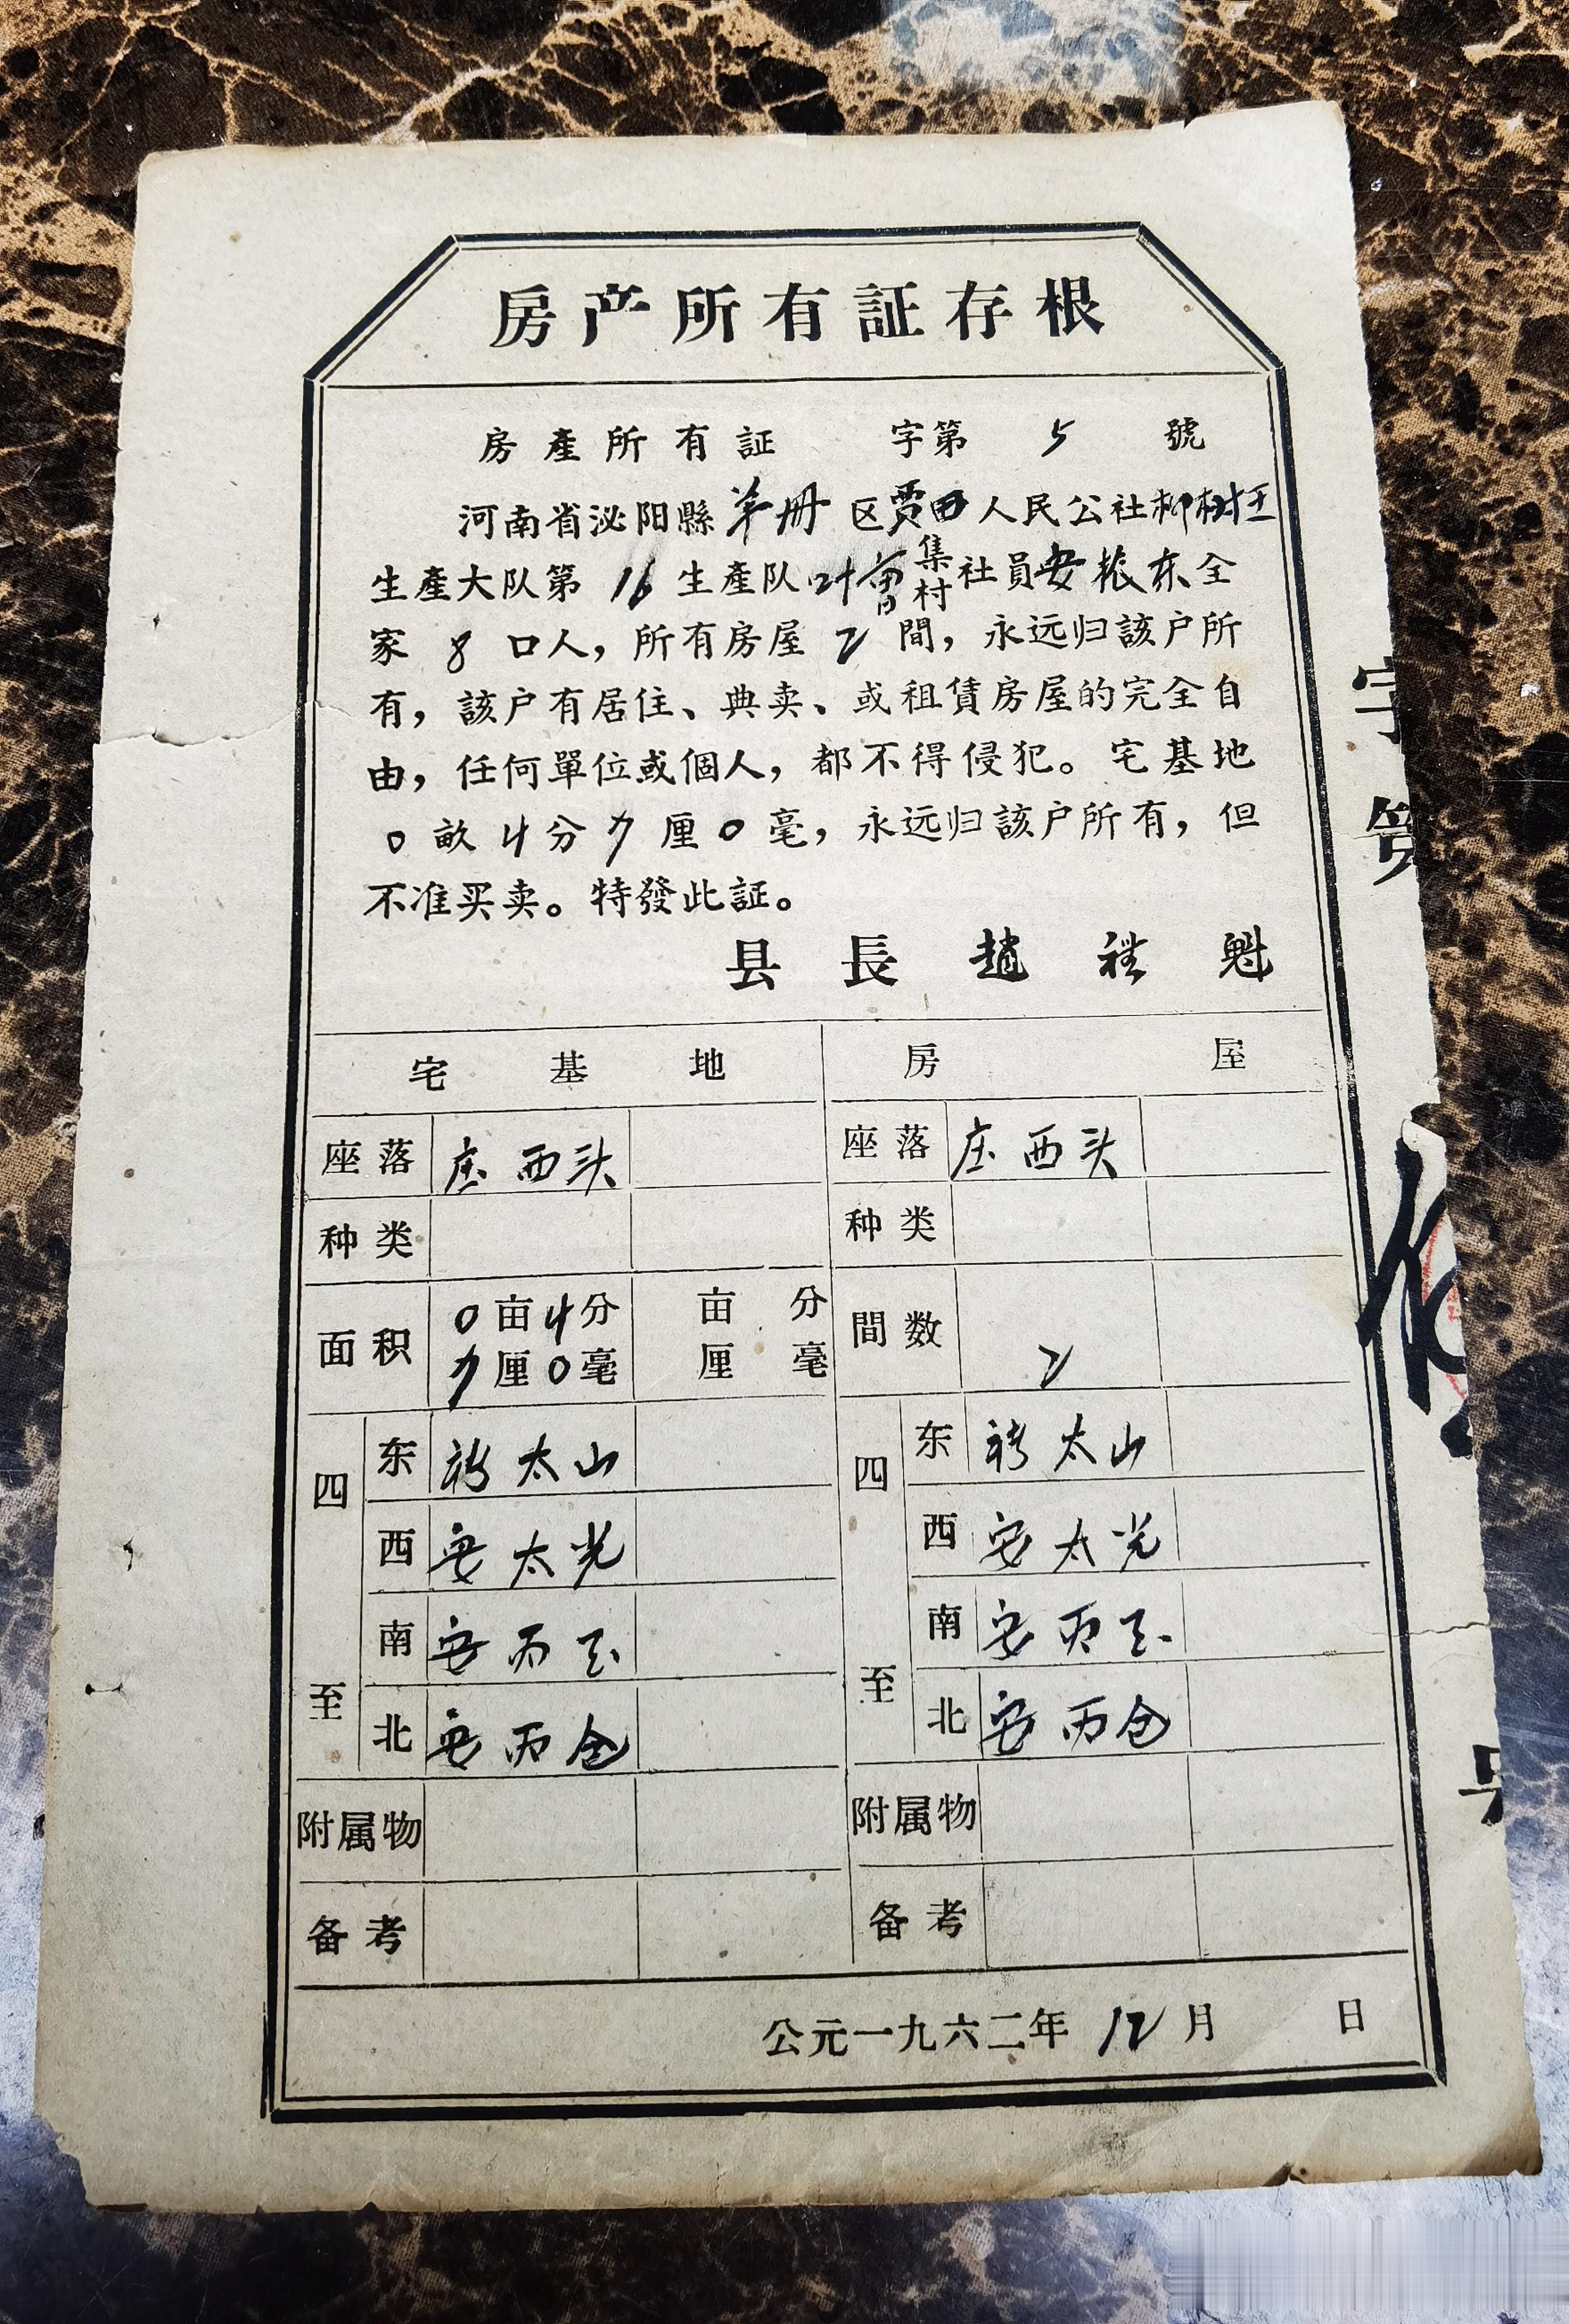 房产所有証存根
房產所有証 字第 5 號
河南省泌阳縣羊册区贾田人民公社柳树王
生產大队第 16 生產队叶曹集村社員安振东全
家 8 口人，所有房屋 2 間，永远归該户所
有，該户有居住、典卖、或租賃房屋的完全自
由，任何單位或個人，都不得侵犯。宅基地
0 畝 4 分 7 厘 0 毫，永远归該户所有，但
不准买卖。特發此証。
县長 趙 魁
宅基地 房屋
座落 庄西头 座落 庄西头
种类 种类
面积 0亩4分 亩 分 間数 2
7厘0毫 厘 毫
四至 东 太山 四至 东 太山
西 安太光 西 安太光
南 安丙 南 安丙
北 安丙 北 安丙
附属物 附属物
备考 备考
公元一九六二年 12 月 日
字
第